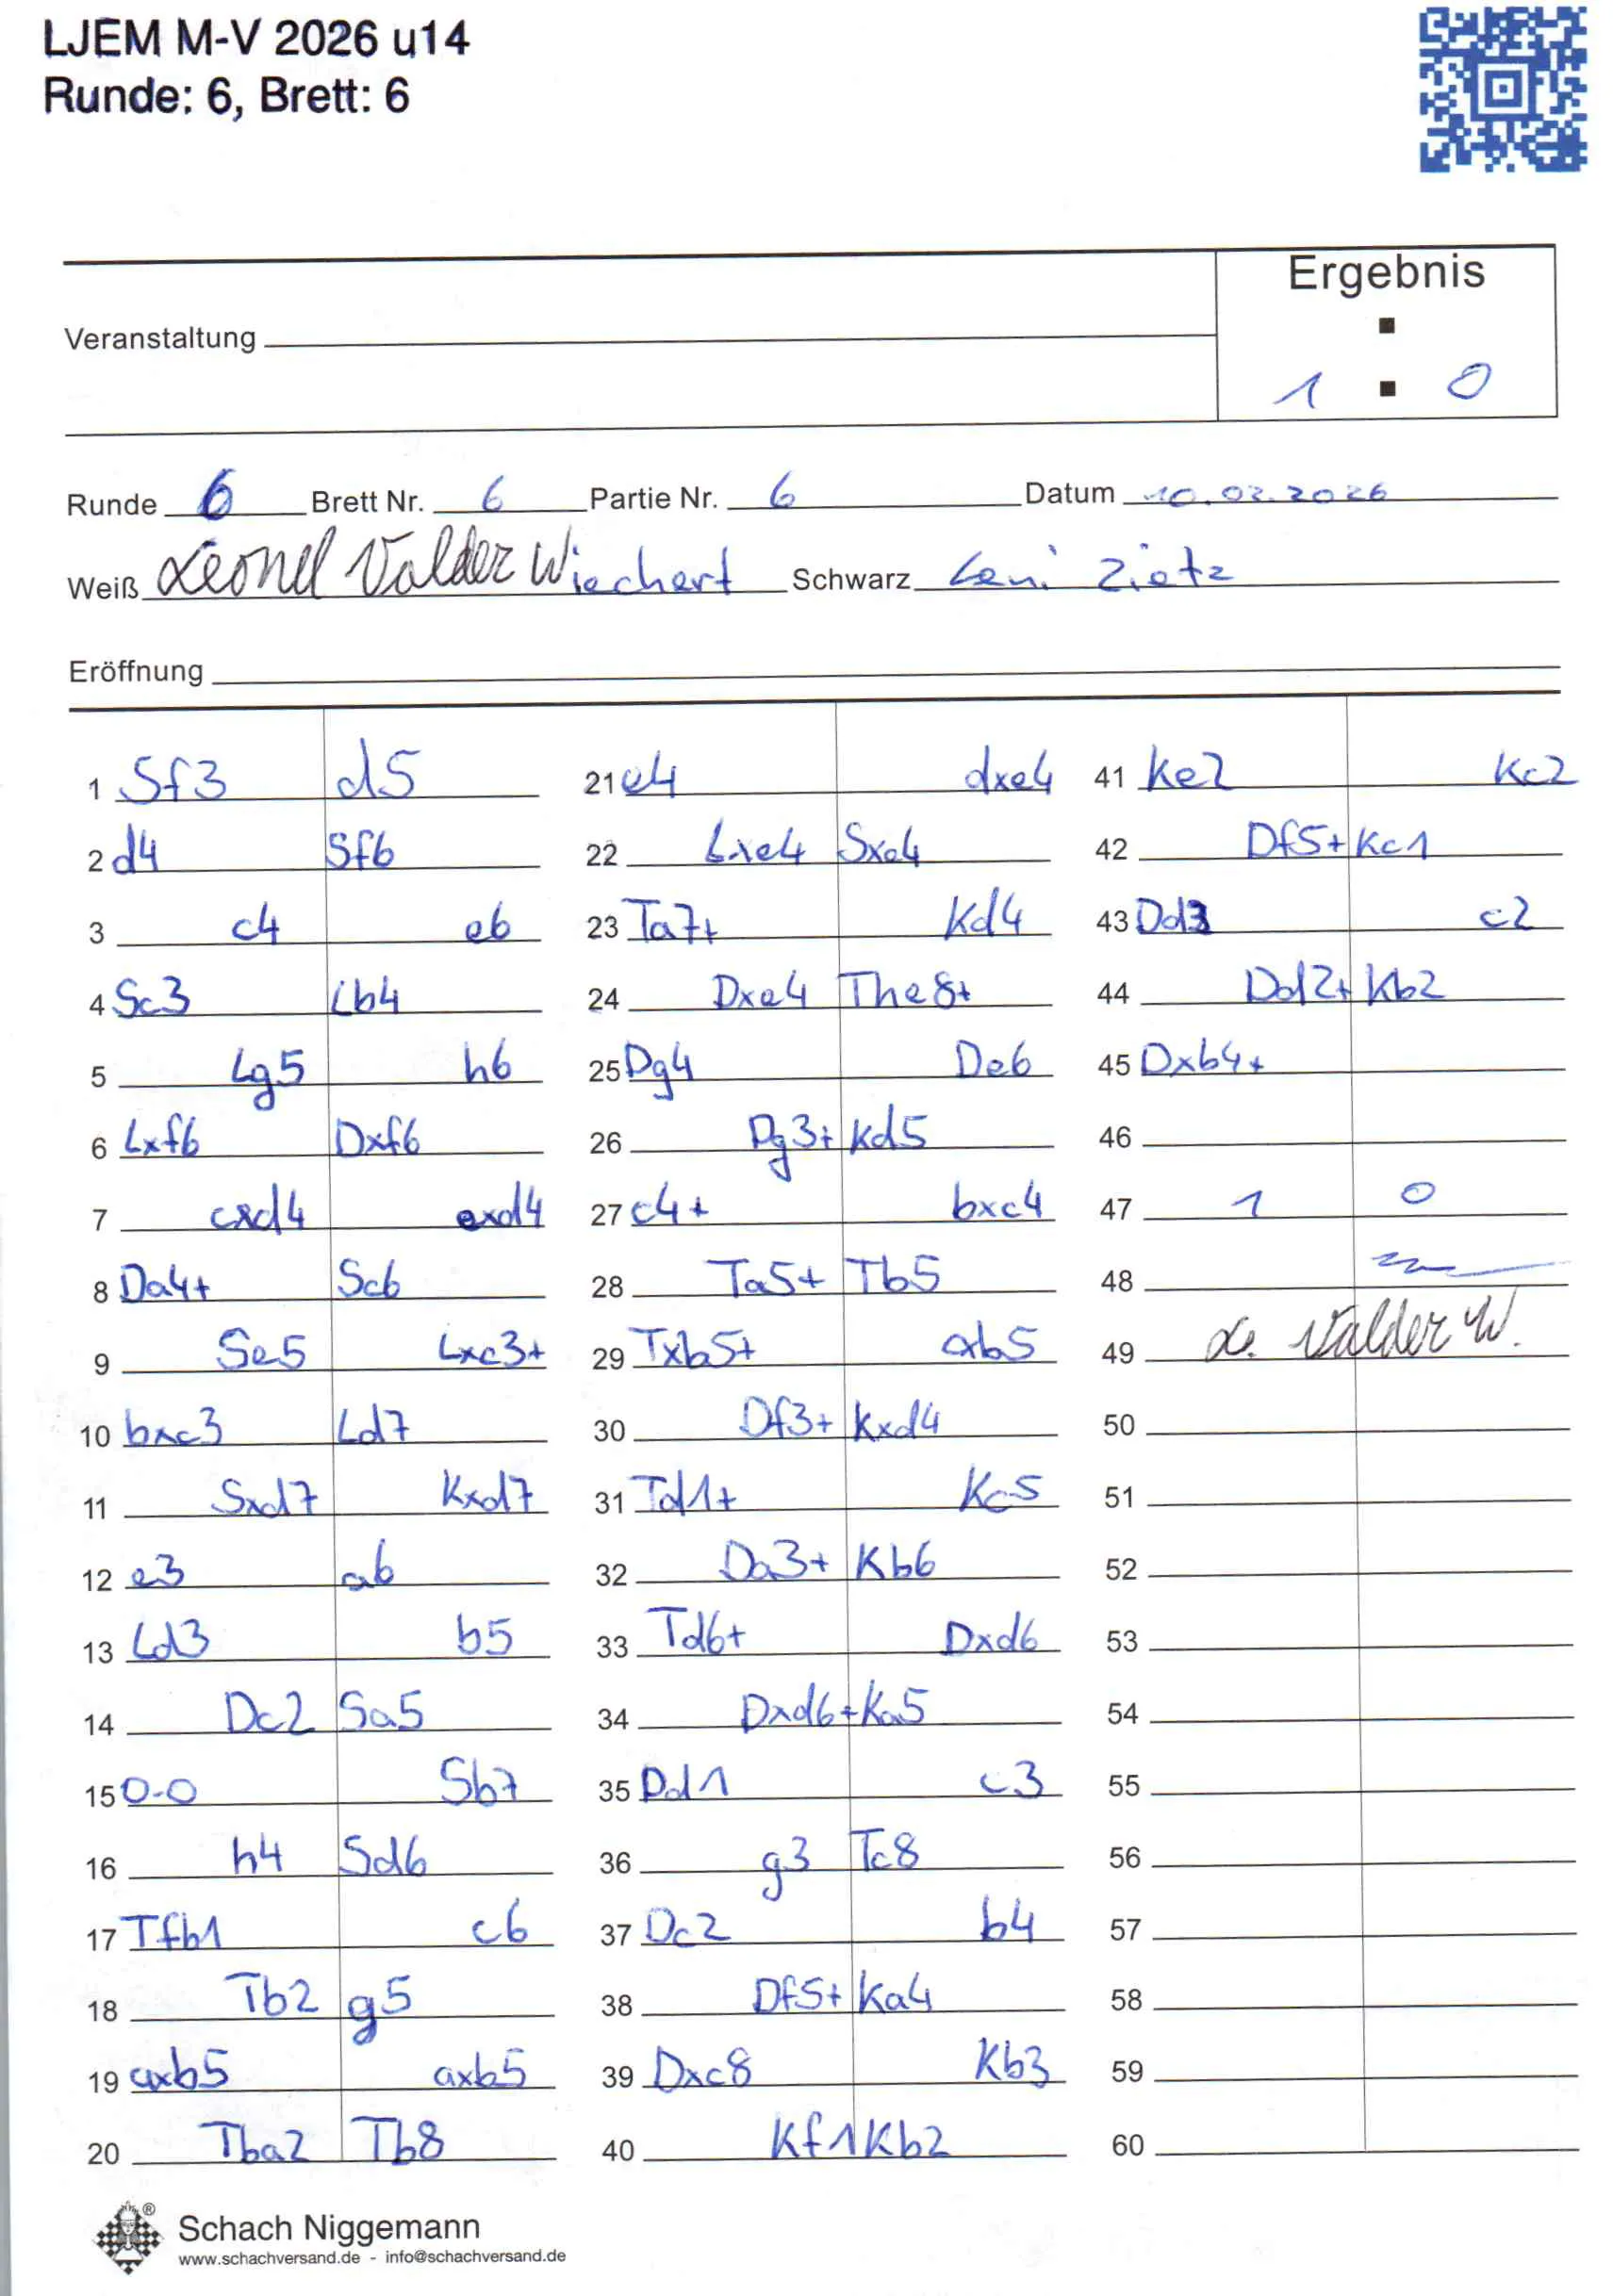 LJEM M-V 2026 u14
Runde: 6, Brett: 6
Ergebnis
Veranstaltung
1 : 0
Runde 6 Brett Nr. 6 Partie Nr. 6 Datum 10.02.2026
Weiß Leonel Valder Wiechert Schwarz Leni Zietz
Eröffnung
1 Sf3 d5
2 d4 Sf6
3 c4 e6
4 Sc3 Lb4
5 Lg5 h6
6 Lxf6 Dxf6
7 cxd4 exd4
8 Da4+ Sc6
9 Se5 Lxc3+
10 bxc3 Ld7
11 Sxd7 Kxd7
12 e3 a6
13 Ld3 b5
14 Dc2 Sa5
15 0-0 Sb7
16 h4 Sd6
17 Tfb1 c6
18 Tb2 g5
19 axb5 axb5
20 Tba2 Tb8
21 e4 dxe4
22 Lxe4 Sxe4
23 Ta7+ Kd4
24 Dxe4 The8+
25 Dg4 De6
26 Dg3+ Kd5
27 c4+ bxc4
28 Ta5+ Tb5
29 Txb5+ axb5
30 Df3+ Kxd4
31 Td1+ Kc5
32 Da3+ Kb6
33 Td6+ Dxd6
34 Dxd6+ Ka5
35 Dd1 c3
36 g3 Tc8
37 Dc2 b4
38 Df5+ Ka4
39 Dxc8 Kb3
40 Kf1 Kb2
41 Ke2 Kc2
42 Df5+ Kc1
43 Dd3 c2
44 Dd2+ Kb2
45 Dxb4+
46
47 1 0
48
49 L. Valder W.
50
51
52
53
54
55
56
57
58
59
60
Schach Niggemann
www.schachversand.de - info@schachversand.de